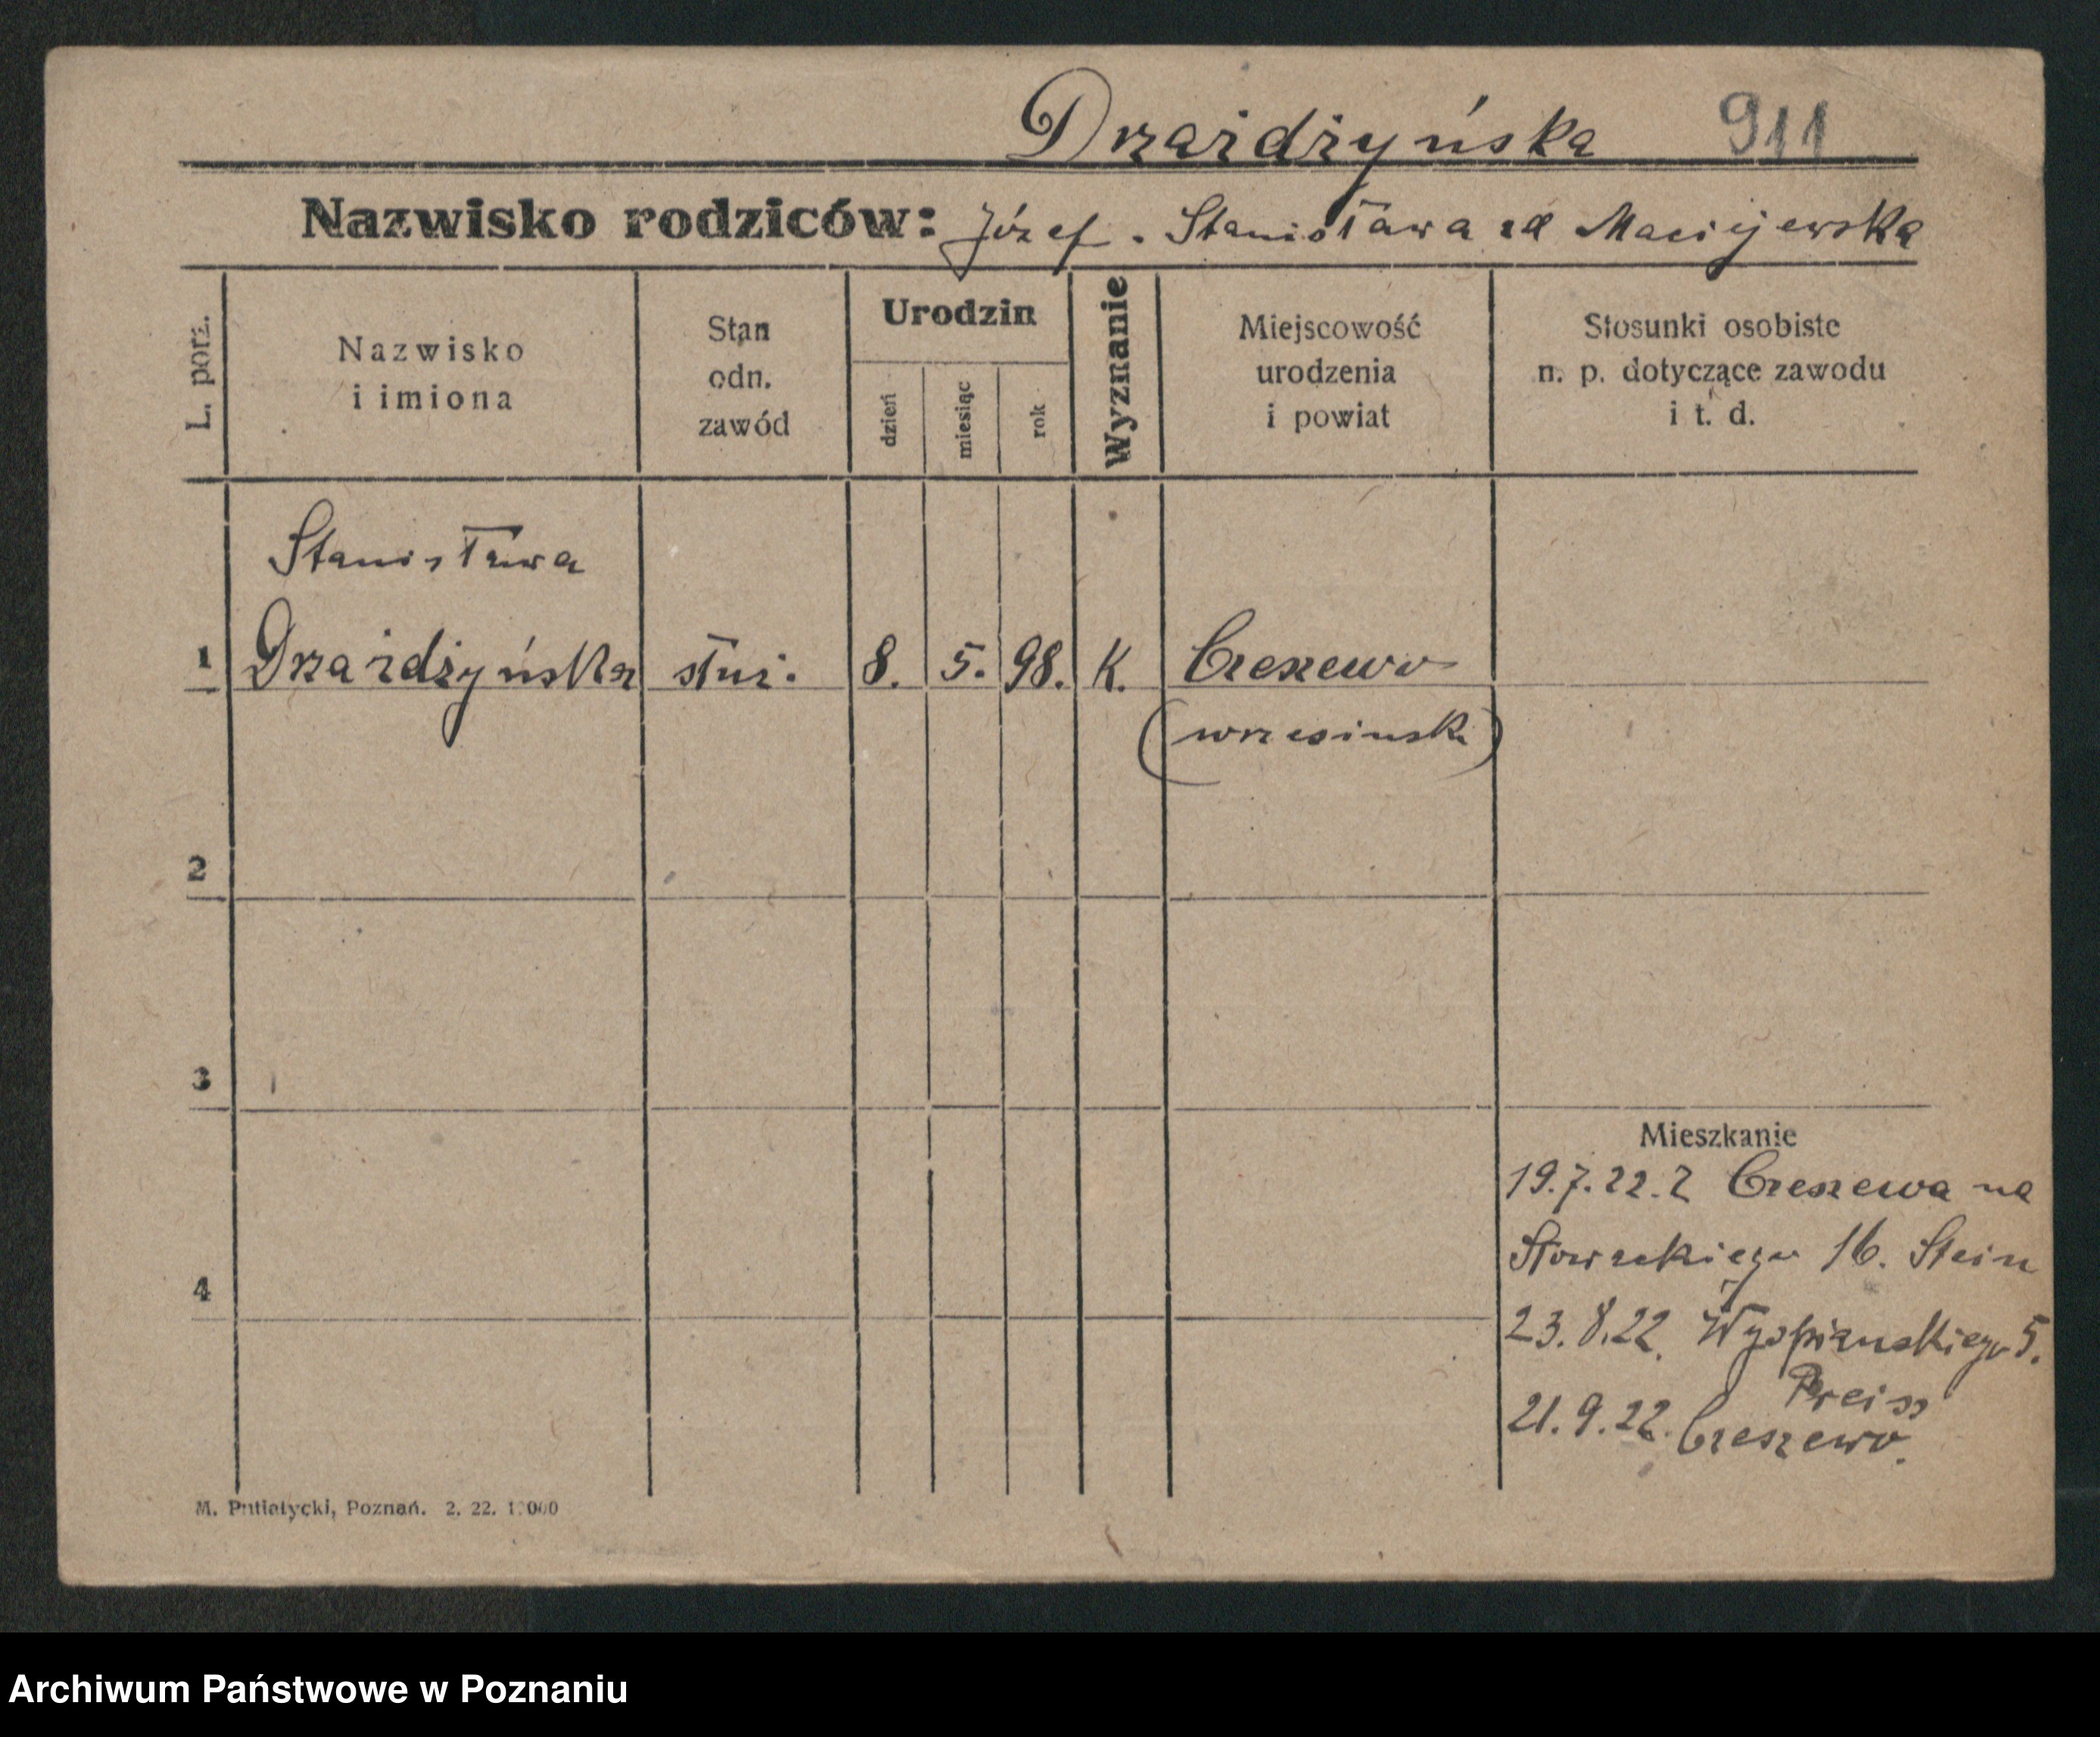 Drzażdżyńska 911
Nazwisko rodziców: Józef . Stanisława zd Maciejewska
L. porz.
Nazwisko
i imiona
Stan
odn.
zawód
Urodzin
dzień
miesiąc
rok
Wyznanie
Miejscowość
urodzenia
i powiat
Stosunki osobiste
n. p. dotyczące zawodu
i t. d.
Stanisława
1 Drzażdżyńska służ. 8. 5. 98. K. Czeszewo
(wrzesinsk)
2
3
4
Mieszkanie
19.7.22. z Czeszewa na
Słowackiego 16. Stein
23.8.22. Wyspianskiego 5.
Preiss
21.9.22. Czeszewo.
M. Putiatycki, Poznań. 2. 22.
Archiwum Państwowe w Poznaniu